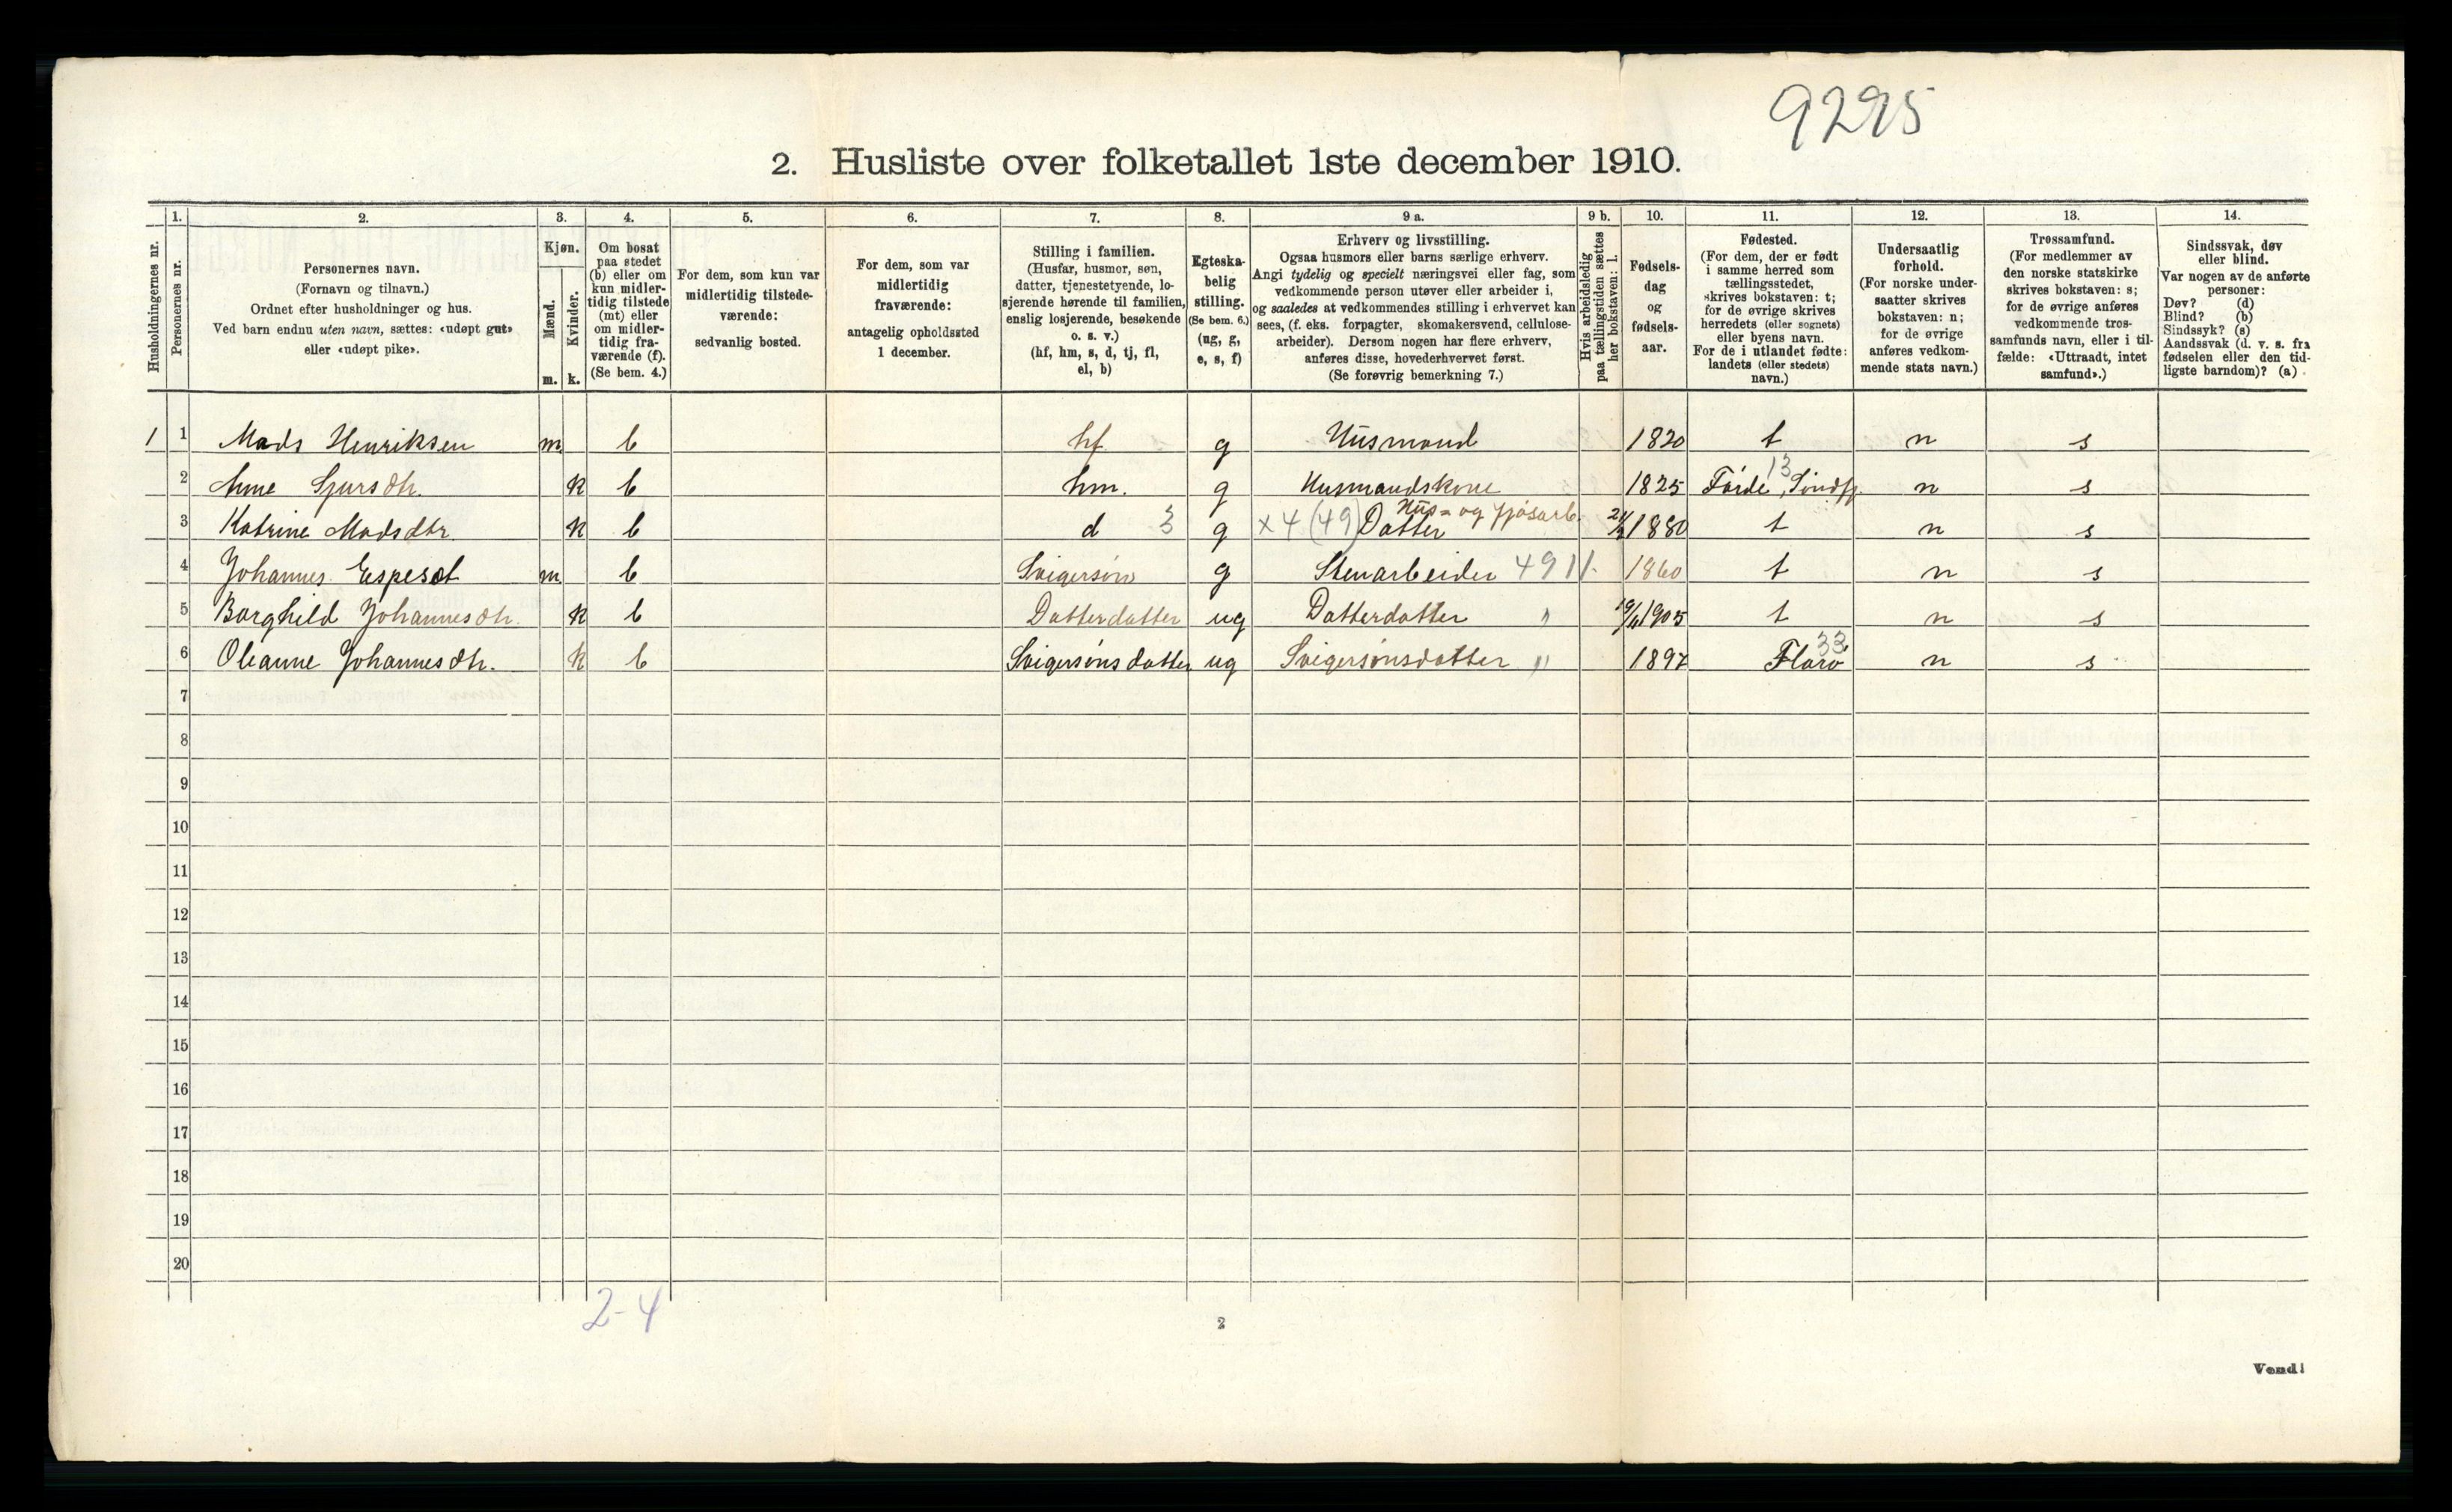 9295
2. Husliste over folketallet 1ste december 1910.
Husholdningernes nr.
1.
Personernes nr.
2.
Personernes navn.
(Fornavn og tilnavn.)
Ordnet efter husholdninger og hus.
Ved barn endnu uten navn, sættes: «udøpt gut»
eller «udøpt pike».
3.
Kjøn.
Mænd.
Kvinder.
m. k.
4.
Om bosat
paa stedet
(b) eller om
kun midler-
tidig tilstede
(mt) eller
om midler-
tidig fra-
værende (f).
(Se bem. 4.)
5.
For dem, som kun var
midlertidig tilstede-
værende:
sedvanlig bosted.
6.
For dem, som var
midlertidig
fraværende:
antagelig opholdssted
1 december.
7.
Stilling i familien.
(Husfar, husmor, søn,
datter, tjenestetyende, lo-
sjerende hørende til familien,
enslig losjerende, besøkende
o. s. v.)
(hf, hm, s, d, tj, fl,
el, b)
8.
Egteska-
belig
stilling.
(Se bem. 6.)
(ug, g,
e, s, f)
9 a.
Erhverv og livsstilling.
Ogsaa husmors eller barns særlige erhverv.
Angi tydelig og specielt næringsvei eller fag, som
vedkommende person utøver eller arbeider i,
og saaledes at vedkommendes stilling i erhvervet kan
sees, (f. eks. forpagter, skomakersvend, cellulose-
arbeider). Dersom nogen har flere erhverv,
anføres disse, hovederhvervet først.
(Se forøvrig bemerkning 7.)
9 b.
Hvis arbeidsledig
paa tællingstiden sættes
her bokstaven: l.
10.
Fødsels-
dag
og
fødsels-
aar.
11.
Fødested.
(For dem, der er født
i samme herred som
tællingsstedet,
skrives bokstaven: t;
for de øvrige skrives
herredets (eller sognets)
eller byens navn.
For de i utlandet fødte:
landets (eller stedets)
navn.)
12.
Undersaatlig
forhold.
(For norske under-
saatter skrives
bokstaven: n;
for de øvrige
anføres vedkom-
mende stats navn.)
13.
Trossamfund.
(For medlemmer av
den norske statskirke
skrives bokstaven: s;
for de øvrige anføres
vedkommende tros-
samfunds navn, eller i til-
fælde: «Uttraadt, intet
samfund».)
14.
Sindssvak, døv
eller blind.
Var nogen av de anførte
personer:
Døv? (d)
Blind? (b)
Sindssyk? (s)
Aandssvak (d. v. s. fra
fødselen eller den tid-
ligste barndom)? (a)
1 1 Mads Henriksen m b hf g Husmand 1820 t n s
2 Anne Sjursdtr. k b hm. g Husmandskone 1825 Førde, Søndfj. 13 n s
3 Katrine Madsdtr. k b d 3 g x 4 (49) Datter Hus= og fjøsarb. 1880 t n s
4 Johannes Espeset m b Svigersøn g Stenarbeider 4911. 1860 t n s
5 Borghild Johannesdtr. k b Datterdatter ug Datterdatter " 1905 t n s
6 Oleanne Johannesdtr. k b Svigersønsdatter ug Svigersønsdatter " 1897 Florø 33 n s
7
8
9
10
11
12
13
14
15
16
17
18
19
20
2-4
2
Vend!